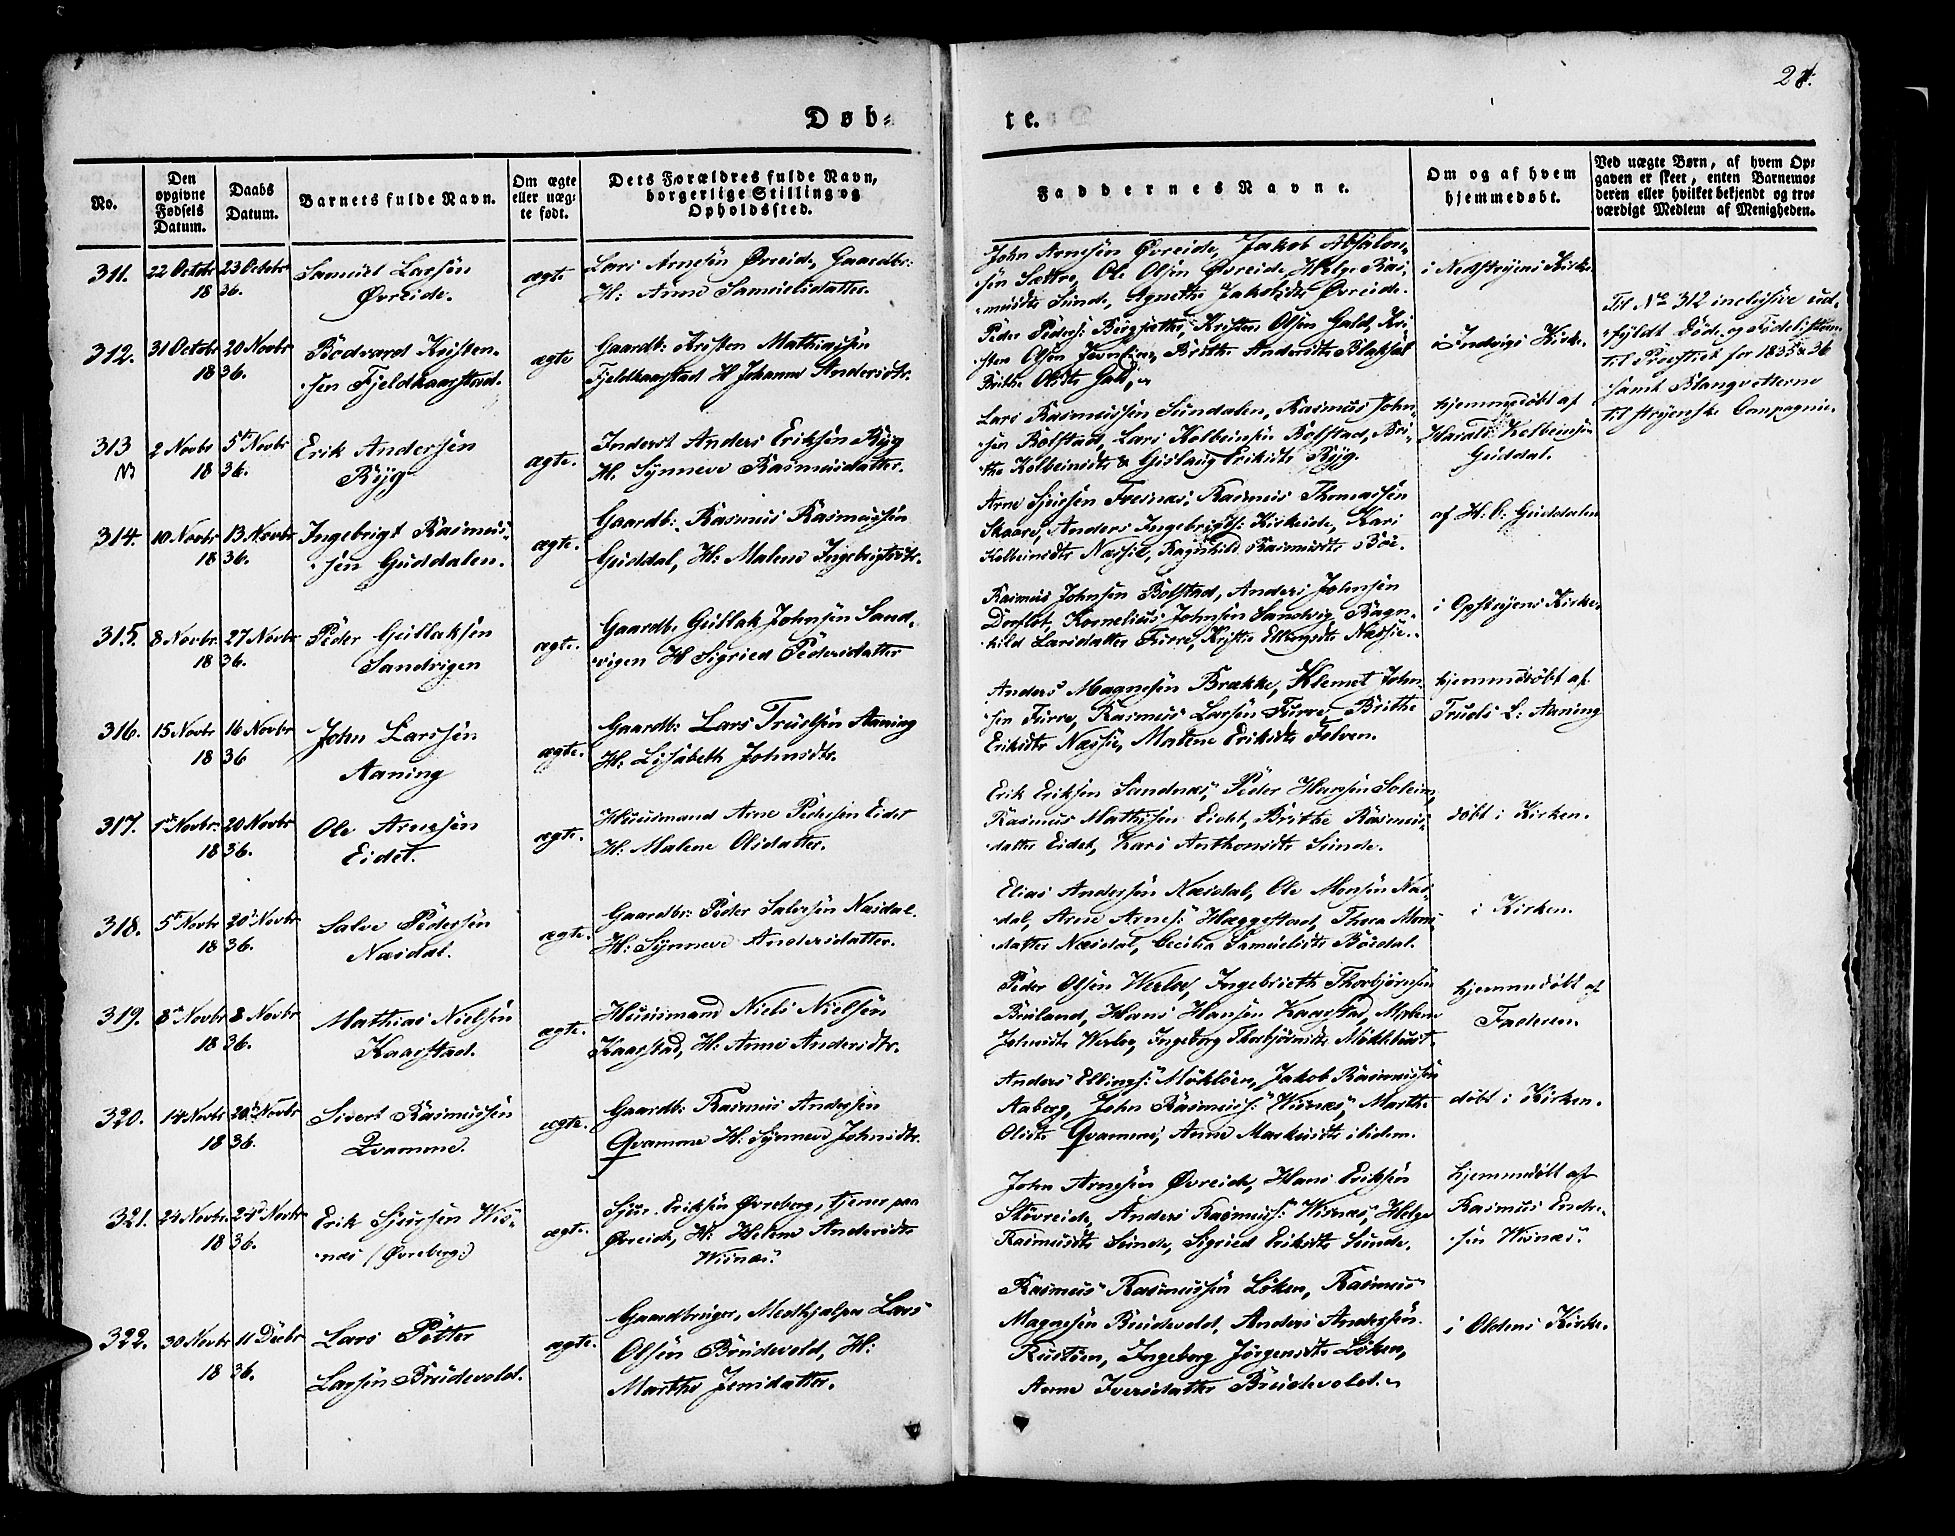 Døb-
te.
No.
Den opgivne Fødsels Datum.
Daabs Datum.
Barnets fulde Navn.
Om ægte eller uægte født.
Dets Forældres fulde Navn, borgerlige Stilling og Opholdssted.
Faddernes Navne.
Om og af hvem hjemmedøbt.
Ved uægte Børn, af hvem Op-
gaven er skeet, enten Barnemo-
deren eller hvilket bekjendt og tro-
værdigt Medlem af Menigheden.
311. 22 Octobr 23 Octobr
18 36.
Samuel Larsen
Øvreide.
ægte
Lars Arnesen Øvreide, Gaardbr:
H: Anne Samuelsdatter.
John Arnesen Øvreide, Jakob Absalon-
sen Sættre, Ole Olsen Øvreide, Helge Ras-
musdtr Sunde, Agnethe Jakobsdtr Øvreide.
i Nedstryens Kirke
312. 31 Octobr 20 Novbr
18 36.
Bodvard Kristen-
sen Fjeldkaarstad.
ægte
Gaardb: Kristen Mathiassen
Fjeldkaarstad H Johanne Andersdtr.
Peder Peders: Bergsæther, Kristen Olsen Gald, Kri-
sten Olsen
Brithe Andersdtr Blaksæt
Brithe Olsdtr Gald,
i Indvigs Kirke.
Til No 312 inclusive ud-
fyldt Døde- og Fødelisterne
til Provstiet for 1835 & 36
samt Blanqvetterne
til stryenske Compagnie.
313 2 Novbr 5te Novbr
18 36.
Erik Andersen
Ryg
ægte.
Inderst Anders Eriksen Ryg
H: Synneve Rasmusdatter.
Lars Rasmussen Sundalen, Rasmus John-
sen Bolstad, Lars Kolbeinsen Bolstad, Bri-
the Kolbeinsdtr & Gislaug Eriksdtr Ryg.
hjemmedøbt af
Harald Kolbeinsen
Guddal.
314. 10 Novbr 13 Novbr
18 36.
Ingebrigt Rasmus-
sen Guddalen.
ægte.
Gaardb: Rasmus Rasmussen
Guddal, H: Malene Ingebrigtsdtr.
Arne Sjursen Froesnæs, Rasmus Thomassen
Skaare, Anders Ingebrigts: Kirkeide, Kari
Kolbeinsdtr Næssie, Ragnhild Rasmusdtr Böe.
af H: O: Guddalen
315. 8 Novbr 27 Novbr
18 36.
Peder Gullaksen
Sandvigen
ægte.
Gaardb. Gullak Johnsen Sand-
vigen H Sigried Pedersdatter
Rasmus Johnsen Bolstad, Anders Johnsen
Dosflot, Kornelius Johnsen Sandvig, Ragn-
hild Larsdatter Furre, Kristi
Næssie.
i Opstryens Kirke
316. 15 Novbr 16 Novbr
18 36
John Larssen
Aaning
ægte.
Gaardb: Lars Truelsen Aaning
H: Lisabeth Johnsdtr.
Anders Magnesen Brække, Klemet John-
sen Furre, Rasmus Larsen Furre, Brithe
Eriksdtr Næssie, Malene Eriksdtr Folven.
hjemmedöbt af
Truels L: Aaning
317. 1ste Novbr: 20 Novbr
18 36.
Ole Arnesen
Eidet.
ægte.
Huusmand Arne Pedersen Eidet
H: Malene Olsdatter.
Erik Eriksen Sandnæs, Peder Hansen Soleim,
Rasmus Mathisen Eidet, Brithe Rasmus-
datter Eidet, Kari Anthonsdtr Sunde.
döbt i Kirken.
318. 5te Novbr 20de Novbr
18 36.
Salve Pedersen
Næsdal.
ægte.
Gaardbr: Peder Salvesen Næsdal.
H: Synneve Andersdatter.
Elias Andersen Næsdal, Ole Monsen Næs-
dal, Arne Arnes: Hæggestad, Thora Mons-
datter Næsdal, Cecilia Samuelsdtr Bödal.
i Kirken.
319. 8de Novbr 8 Novbr
18 36.
Mathias Nielsen
Kaarstad.
ægte.
Huusmand Niels Nielsen
Kaarstad, H: Anne Andersdtr.
Peder Olsen Werlo, Ingebrieth Thorbjørnsen
Bruland, Hans Hansen Kaarstad, Malene
Johnsdtr Werlo, Ingeborg Thorbjörnsdtr Möklebust.
hjemmedöbt af
Faderen.
320. 14 Novbr 20de Novbr
18 36.
Sivert Rasmussen
Qvamme.
ægte.
Gaardb: Rasmus Andersen
Qvamme H: Synneve Johnsdtr.
Anders Ellings: Möklöen, Jakob Rasmussen
Aaberg, John Rasmus: Wisnæs, Marthe
Olsdtr Qvamme, Anne Markusdtr ibidem.
döbt i Kirken.
321. 24 Novbr. 24de Novbr
18 36.
Erik Sjursen Wis-
næs (Øvreberg:)
ægte.
Sjur Eriksen Øvreberg, tjener paa
Øvreide, H: Helene Andersdtr
Wisnæs.
John Arnesen Øvreide, Hans Eriksen
Stövreide, Anders Rasmus: Wisnæs, Helge
Rasmusdtr Sunde, Sigried Eriksdtr Sunde.
hjemmedöbt af
Rasmus Ender-
sen Wisnæs.
322. 30 Novbr 11 Decbr
18 36.
Lars Petter
Larsen Bredevold.
ægte.
Gaardbruger, Medhjelper Lars
Olsen Bredevold, H:
Marthe Jensdatter.
Rasmus Rasmussen Löken, Rasmus
Magnesen Bredevold, Anders Andersen
Rustöen, Ingeborg Jörgensdtr Löken,
Anne Iversdatter Bredevold.
i Oldens Kirke.